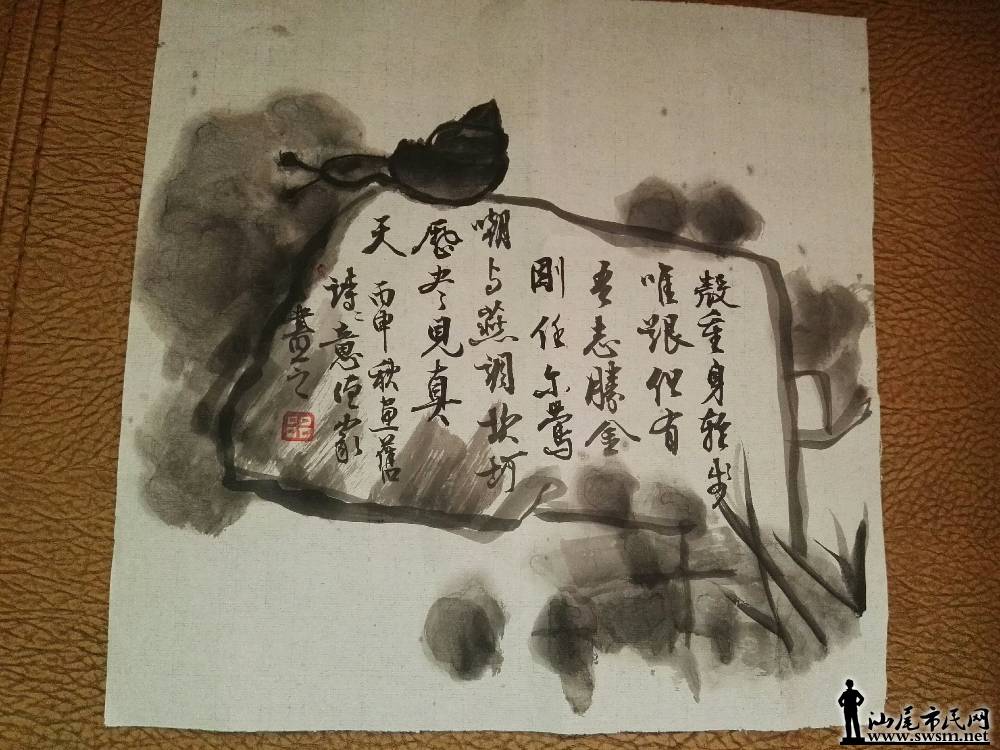 殼重身轻步
唯艰但有
吾志勝金
剛任尔鶯
嘲与燕調坎坷
歷尽見真
天 丙申秋画舊
詩意
畫之
汕尾市民网
www.swsm.net